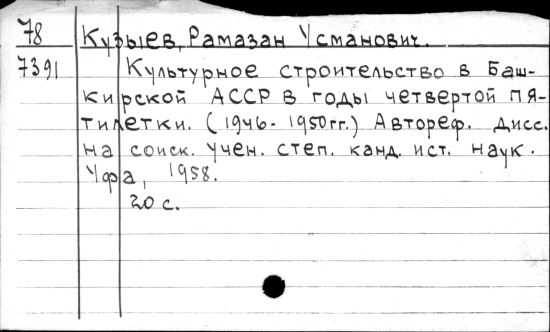 78 Кузыев, Рамазан Усманович.
7391 Культурное строительство в Баш-
кирской АССР в годы четвертой пя-
тилетки. (1946-1950гг.) Автореф. дисс.
на соиск. учен. степ. канд. ист. наук.
Уфа, 1958.
20 с.